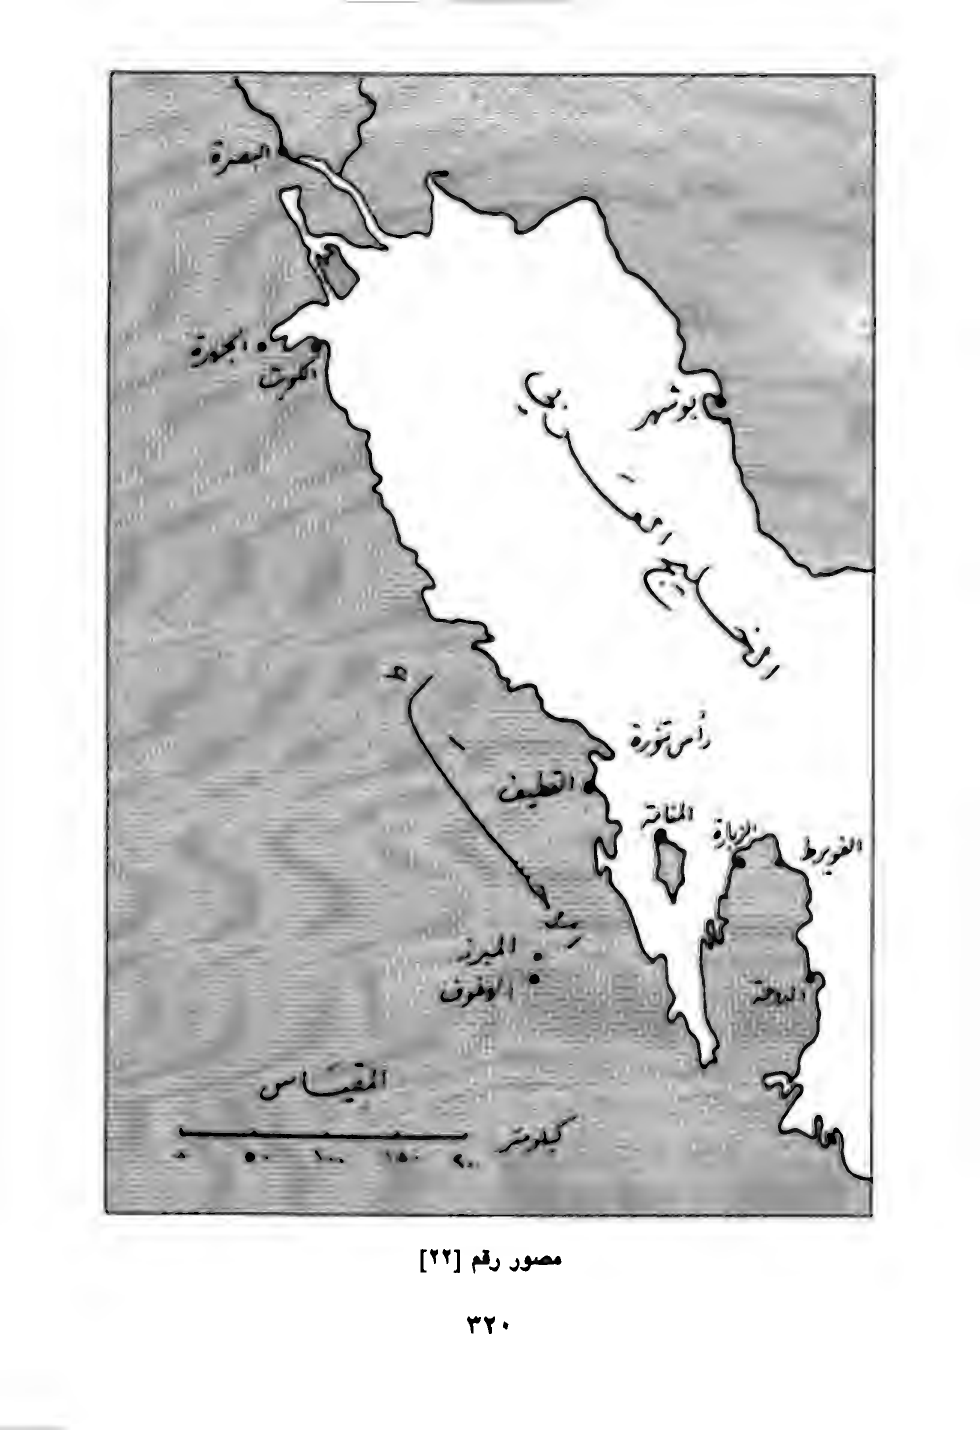 البصرة
الجهرة
الكويت
بوشهر
الخليج
العربي
رأس تنورة
القطيف
المنامة
الزبارة
الفويرط
الاحساء
المبرز
الهفوف
الدوحة
المقياس
كيلومتر
٠ ٥٠ ١٠٠ ١٥٠ ٢٠٠
مصور رقم [٢٢]
٣٢٠